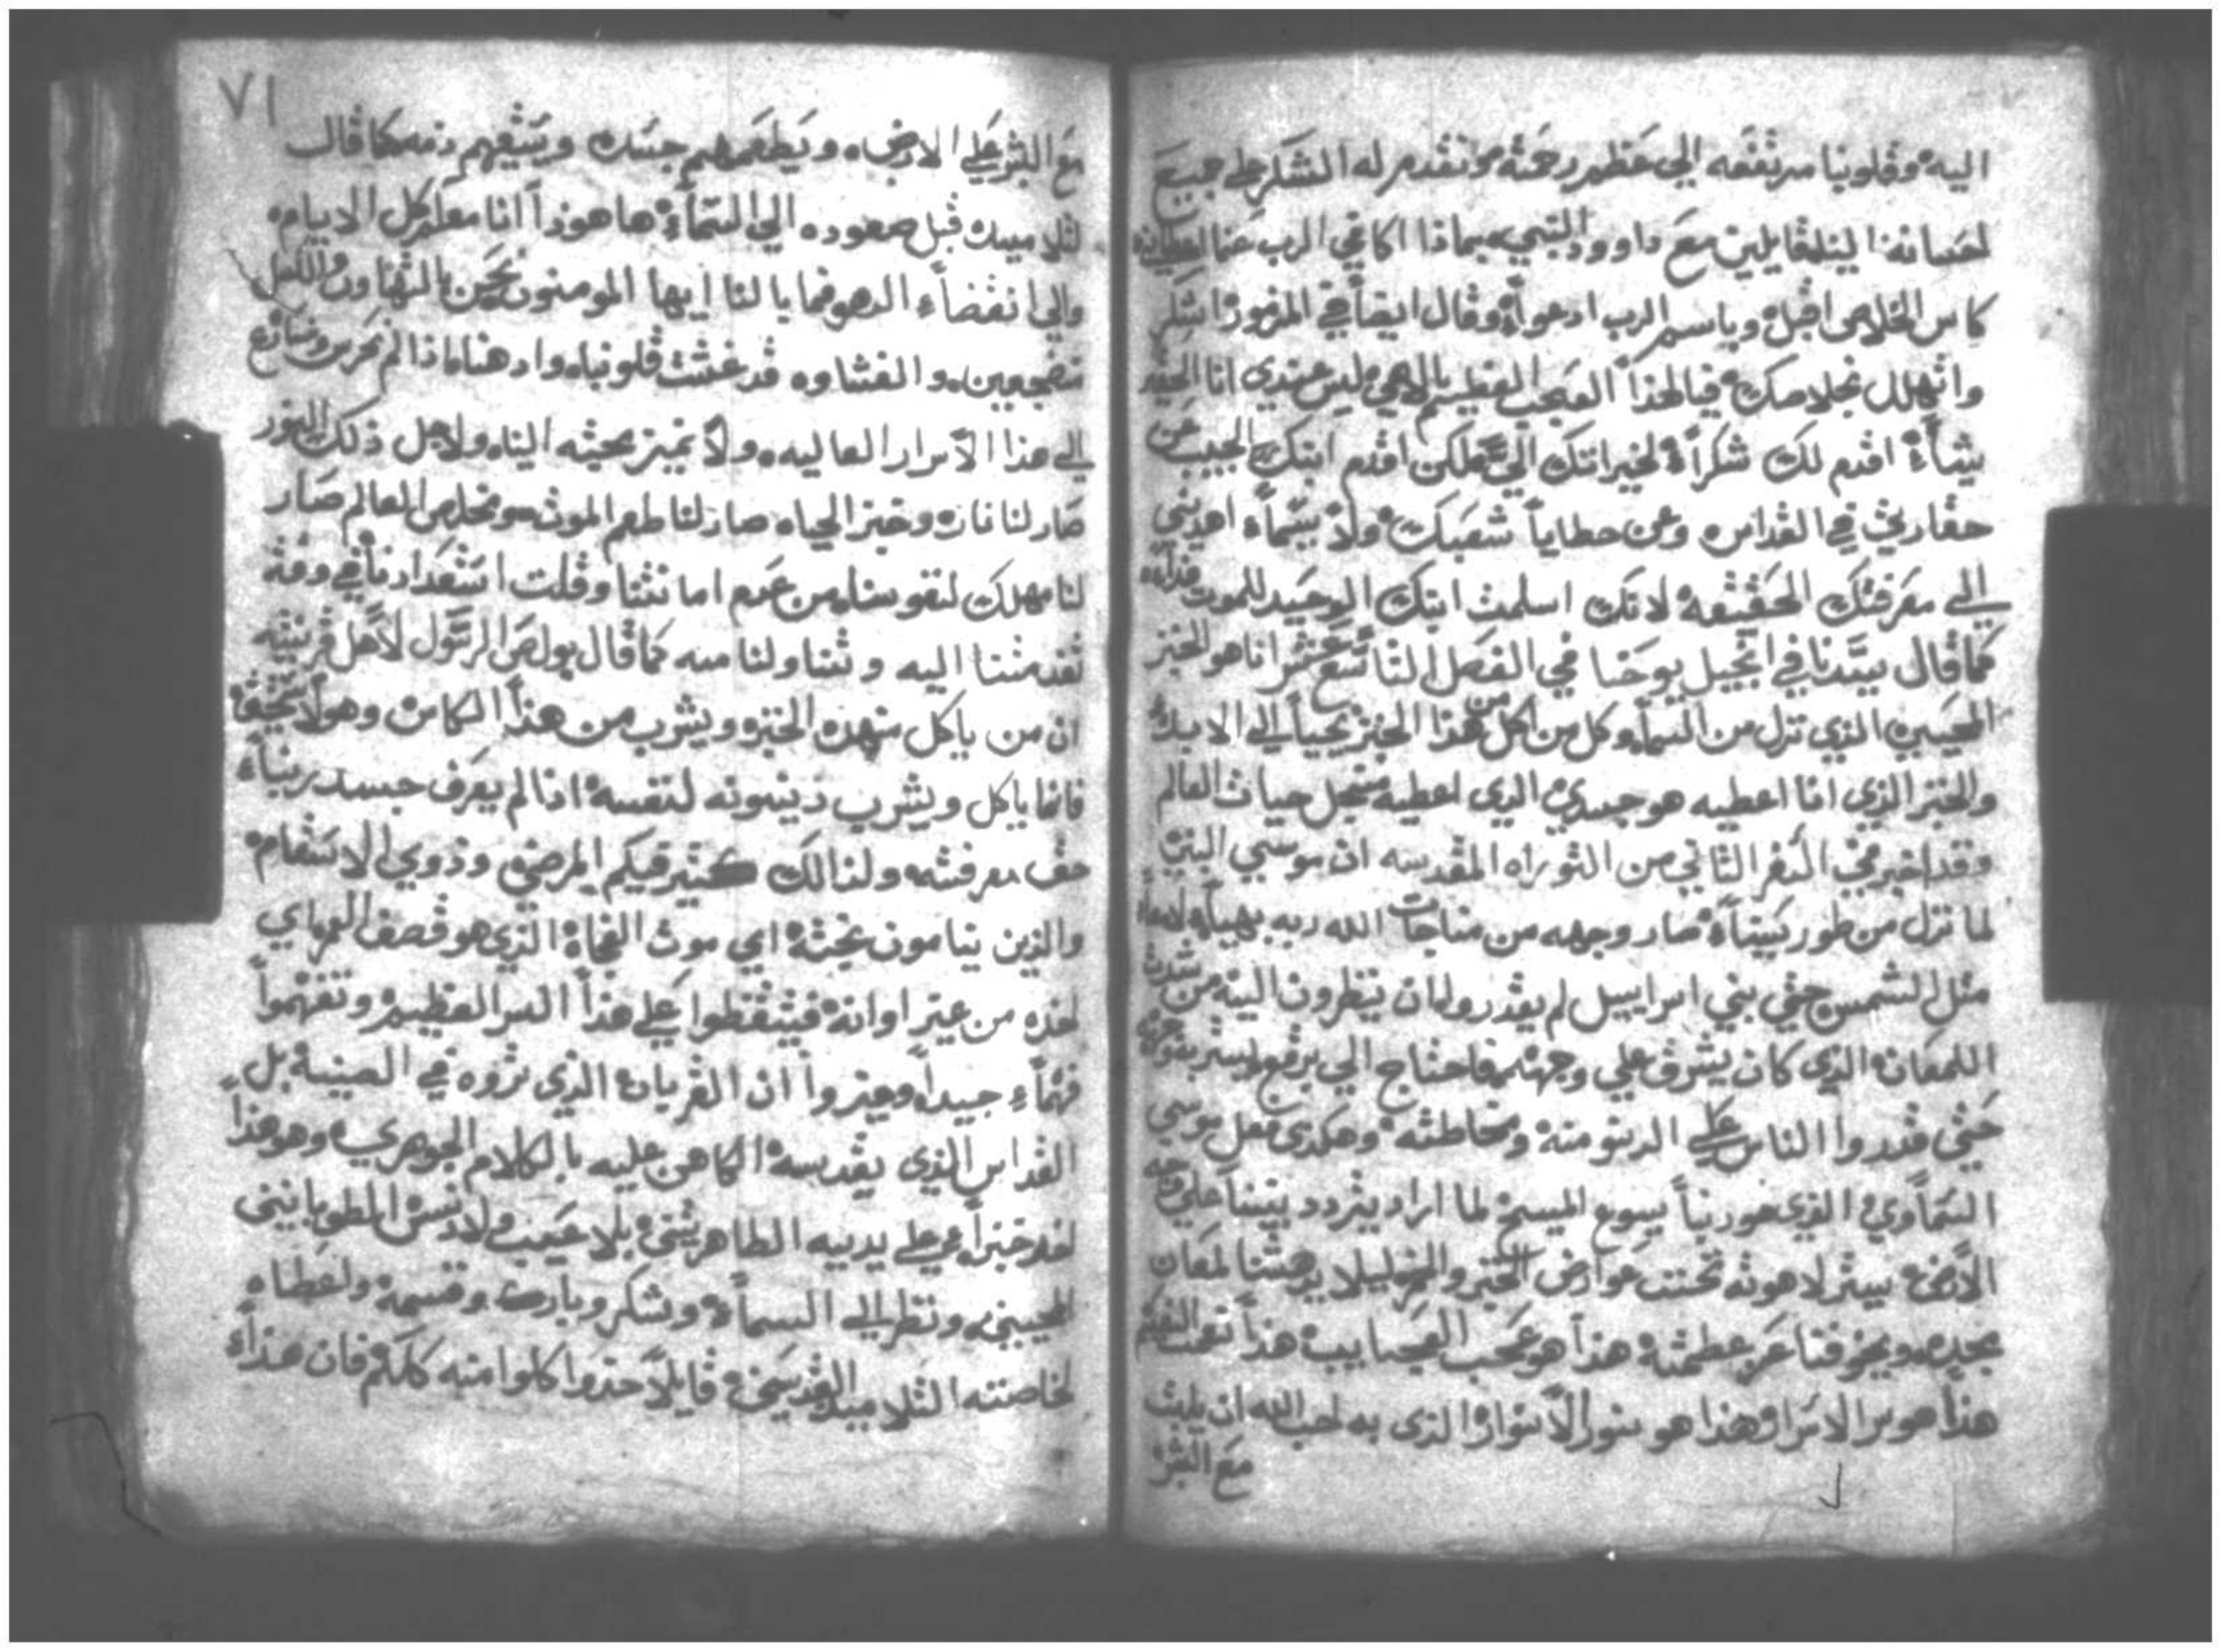 اليه وقلوبنا مرتفعه الي عظم رحمته ونقدم له الشكر علي جميع
احسانه الينا قايلين مع داوود النبي بماذا اكافي الرب عنما اعطانيه
كاس الخلاص اقبل وباسم الرب ادعوا وقال ايضا في المزمور اشكر
واتهلل بخلاصك فيا لهذا العجب العظيم يا الاهي ليس عندي انا الحقير
شياء اقدم لك شكراً لخيراتك اليّ لكن اقدم ابنك الحبيب عن
حقارتي في القداس وعن خطايا شعبك ولا سيماء اهديتني
الي معرفتك الحقيقه لانك اسلمت ابنك الوحيد للموت فداء
كما قال سيدنا في انجيل يوحنا في الفصل التاسع عشر انا هو الخبز
المحيي الذي نزل من السماء وكل من اكل من هذا الخبز يحيا الي الابد
والخبز الذي انا اعطيه هو جسدي الذي اعطيه من اجل حيات العالم
وقد اخبر في السفر الثاني من التوراه المقدسه ان موسي النبي
لما نزل من طور سيناء صار وجهه من مناجات الله ربه بهياً لامعاً
مثل الشمس حتي بني اسراييل لم يقدروا ان ينظرون اليه من شدت
اللمعان الذي كان يشرق علي وجهه فاحتاج الي برقع ليستر
حتي قدروا الناس علي الدنو منه ومخاطبته وهكدي فعل موسي
السماوي الذي هو ربنا يسوع المسيح لما اراد يتردد بيننا علي وجه
الارض ستر لاهوته تحت عوارض الخبز والخمر ليلا يدهشنا لمعان
مجده ويخوفنا عز عظمته هذا هو عجب العجايب هذا
هذا هو سر الاسرار وهذا هو نور الانوار الذي به احب الله ان يلبث
مع البشر
٧١
مع البشر علي الارض ويطعمهم جسده ويسقيهم دمه كما قال
لتلاميذه قبل صعوده الي السماء ها هوذا انا معكم كل الايام
والي انقضاء الدهر فما بالنا ايها المومنون نحن بالتهاون والكسل
مضجعين والغشاوه قد غشت قلوبنا واذهاننا لم نحرس ونسارع
الي هذا الاسرار العاليه ولا نميز محبته الينا ولاجل ذلك النور
صار لنا نار وخبز الحياه صار لنا طعم الموت ومخلص العالم صار
لنا مهلك لنفوسنا من عدم امانتنا وقلت استعدادنا في وقت
تقدمتنا اليه وتناولنا منه كما قال بولص الرسول لاهل قرنتيه
ان من ياكل من هذه الخبز ويشرب من هذا الكاس وهو لا يستحق
فانما ياكل ويشرب دينونه لنفسه اذا لم يعرف جسد ربنا
حق معرفته ولذالك كثير فيكم المرضي وذوي الاسقام
والذين ينامون بغته اي موت الفجاة الذي هو قصف العمر اي
اخذه من غير اوانه فتيقظوا علي هذا السر العظيم وتفهموا
فهماء جيداً وميزوا ان القربان الذي تروه في الصينية بل
القداس الذي يقدسه الكاهن عليه بالكلام الجوهري وهو هذا
اخذ خبزاً علي يديه الطاهرتين بلا عيب ولا دنس
المحييين ونظر الي السماء وشكر وبارك وقسمه واعطاه
لخاصته التلاميذ القديسين قايلاً خذوا كلوا منه كلكم فان هذا